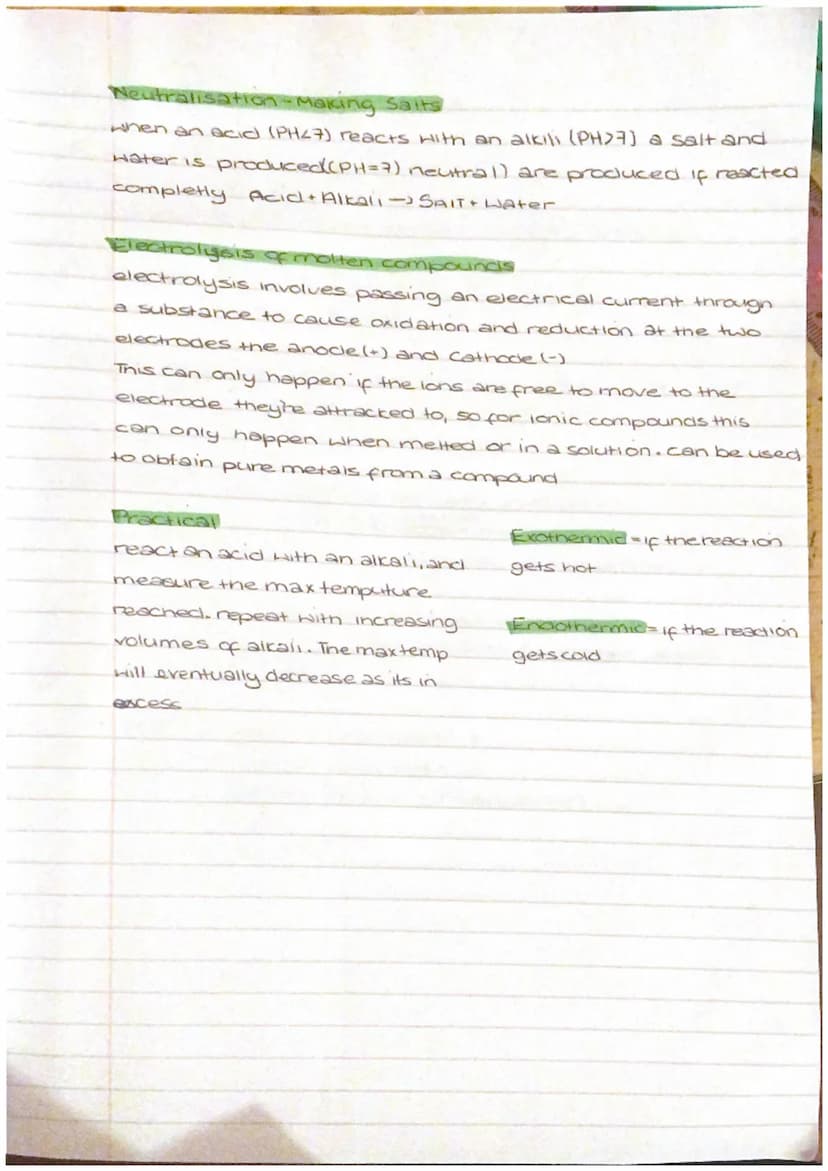 Neutralisation - Making Salts
when an acid (PH<7) reacts with an alkili (PH>7) a salt and
water is produced((PH=7) neutral) are produced if reacted
completly Acid + Alkali -> Salt + Water
Electrolysis of molten compounds
electrolysis involves passing an electrical current through
a substance to cause oxidation and reduction at the two
electrodes the anode(+) and Cathode(-)
This can only happen if the ions are free to move to the
electrode they're attracked to, so for ionic compounds this
can only happen when melted or in a solution. can be used
to obtain pure metals from a compound
Practical
react an acid with an alkali, and
measure the max temputure
reached. repeat with increasing
volumes of alkali. The max temp
will eventually decrease as its in
excess
Exothermic = if the reaction
gets hot
Endothermic = if the reaction
gets cold